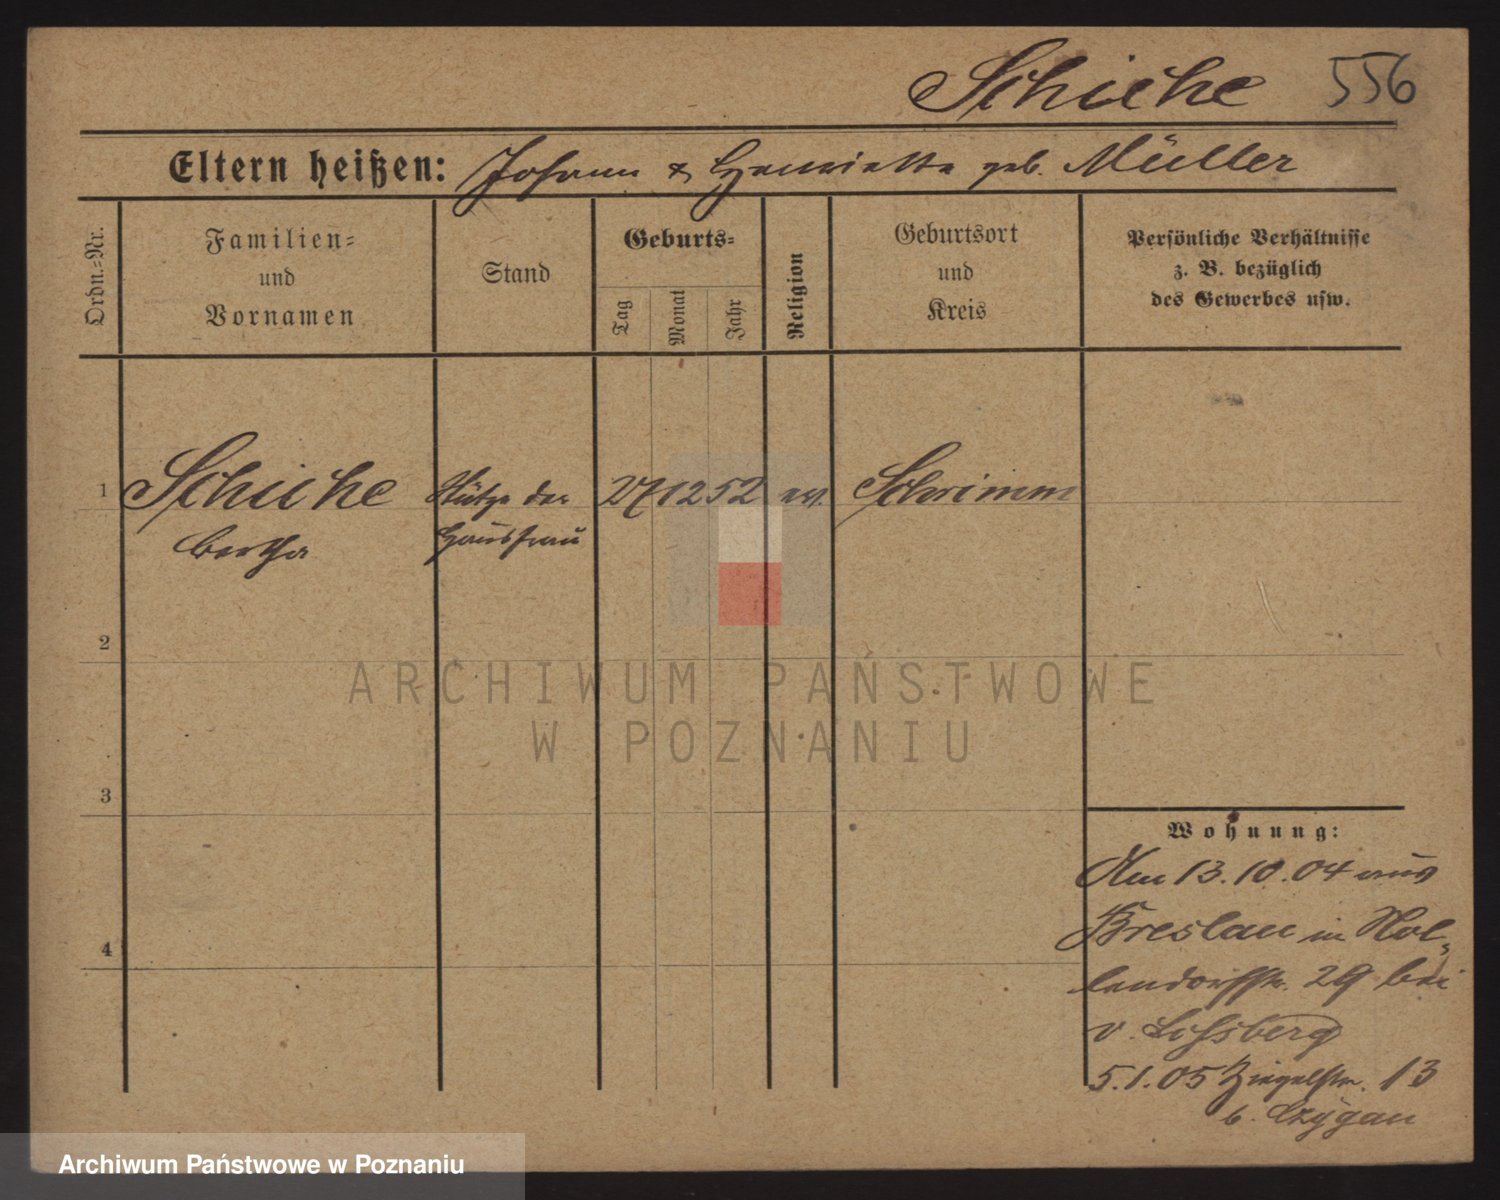 Schiche 556
Eltern heißen: Johann & Henriette geb. Müller
Ordn.=Nr.
Familien=
und
Vornamen
Stand
Geburts=
Tag
Monat
Jahr
Religion
Geburtsort
und
Kreis
Persönliche Verhältnisse
z. B. bezüglich
des Gewerbes usw.
1 Schiche Stütze der 27 12 52 ev. Schrimm
Bertha Hausfrau
2
3
4
Wohnung:
Am 13.10.04 aus
Breslau in Hol=
lendorffstr. 29 bei
v. Loßberg
5.1.05 Ziegelstr. 13
b. Czygan
ARCHIWUM PAŃSTWOWE
W POZNANIU
Archiwum Państwowe w Poznaniu